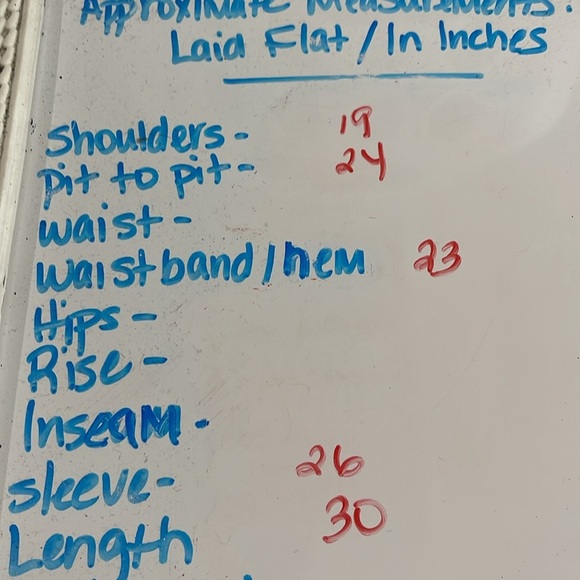 Approximate Measurements:
Laid Flat / In Inches
Shoulders - 19
pit to pit - 24
waist -
waistband / hem 23
Hips -
Rise -
Inseam -
sleeve - 26
Length 30